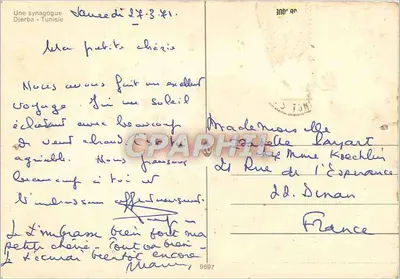 Une synagogue
Djerba - Tunisie
Samedi 27.3.71.
Ma petite chérie
Nous avons fait un excellent
voyage. Ici un soleil
éclatant avec beaucoup
de vent chaud
agréable. Nous pensons
beaucoup à toi et
t'embrassons affectueusement.
Je t'embrasse bien fort ma
petite chérie - Tout va bien -
Je t'écrirai bientôt encore
CPARAMA.COM
Mademoiselle
Mme Koechlin
21 Rue de l'Espérance
22. Dinan
France
9697